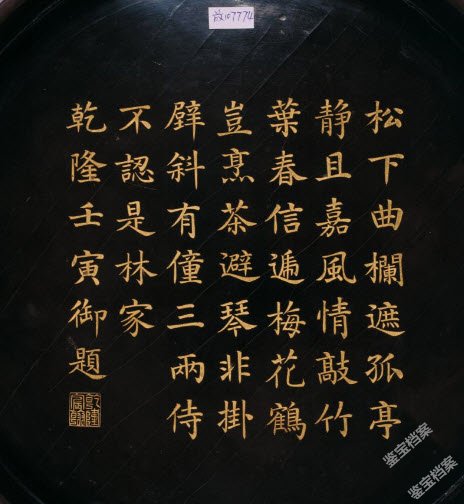 故107774
松下曲欄遮孤亭
静且嘉風情敲竹
葉春信遞梅花鶴
豈烹茶避琴非掛
壁斜有僮三兩侍
不認是林家
乾隆壬寅御題
鉴宝档案
鉴宝档案